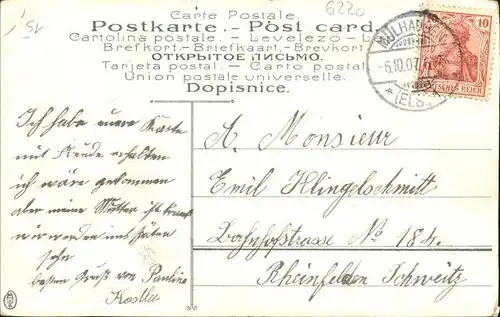 Carte Postale.
6220
Postkarte.- Post card.
Cartolina postale.- Levelező-L
Brefkort.-Briefkaart.-Brevkort
ОТКРЫТОЕ ПИСЬМО.
Tarjeta postal. - Carto postal
Union postale universelle.
Dopisnice.
MÜLHAUSEN
-6.10.07
*(ELS.)*
10
DEUTSCHES REICH
Ich habe eure Karte
mit Freude erhalten
ich wäre gekommen
aber meine Mutter ist krank
wir werden uns später
sehn
besten Gruß von Pauline
A. Monsieur
Emil Klingelschmitt
Bahnhofstrasse No 184.
Rheinfelden Schweitz